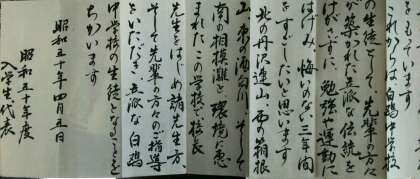 これからは白鴎中学校
の生徒として、先輩の方々
が築かれた立派な伝統を
けがさずに、勉強や運動に
はげみ、悔いのない三年間
をすごしたいと思います
北の丹沢連山、西の箱根
山、東の酒匂川、そして
南の相模灘と環境に恵
まれたこの学校で校長
先生をはじめ諸先生方、
そして先輩の方々のご指導
をいただき、立派な白鴎
中学校の生徒となることを
ちかいます
昭和五十年四月五日
昭和五十年度
入学生代表